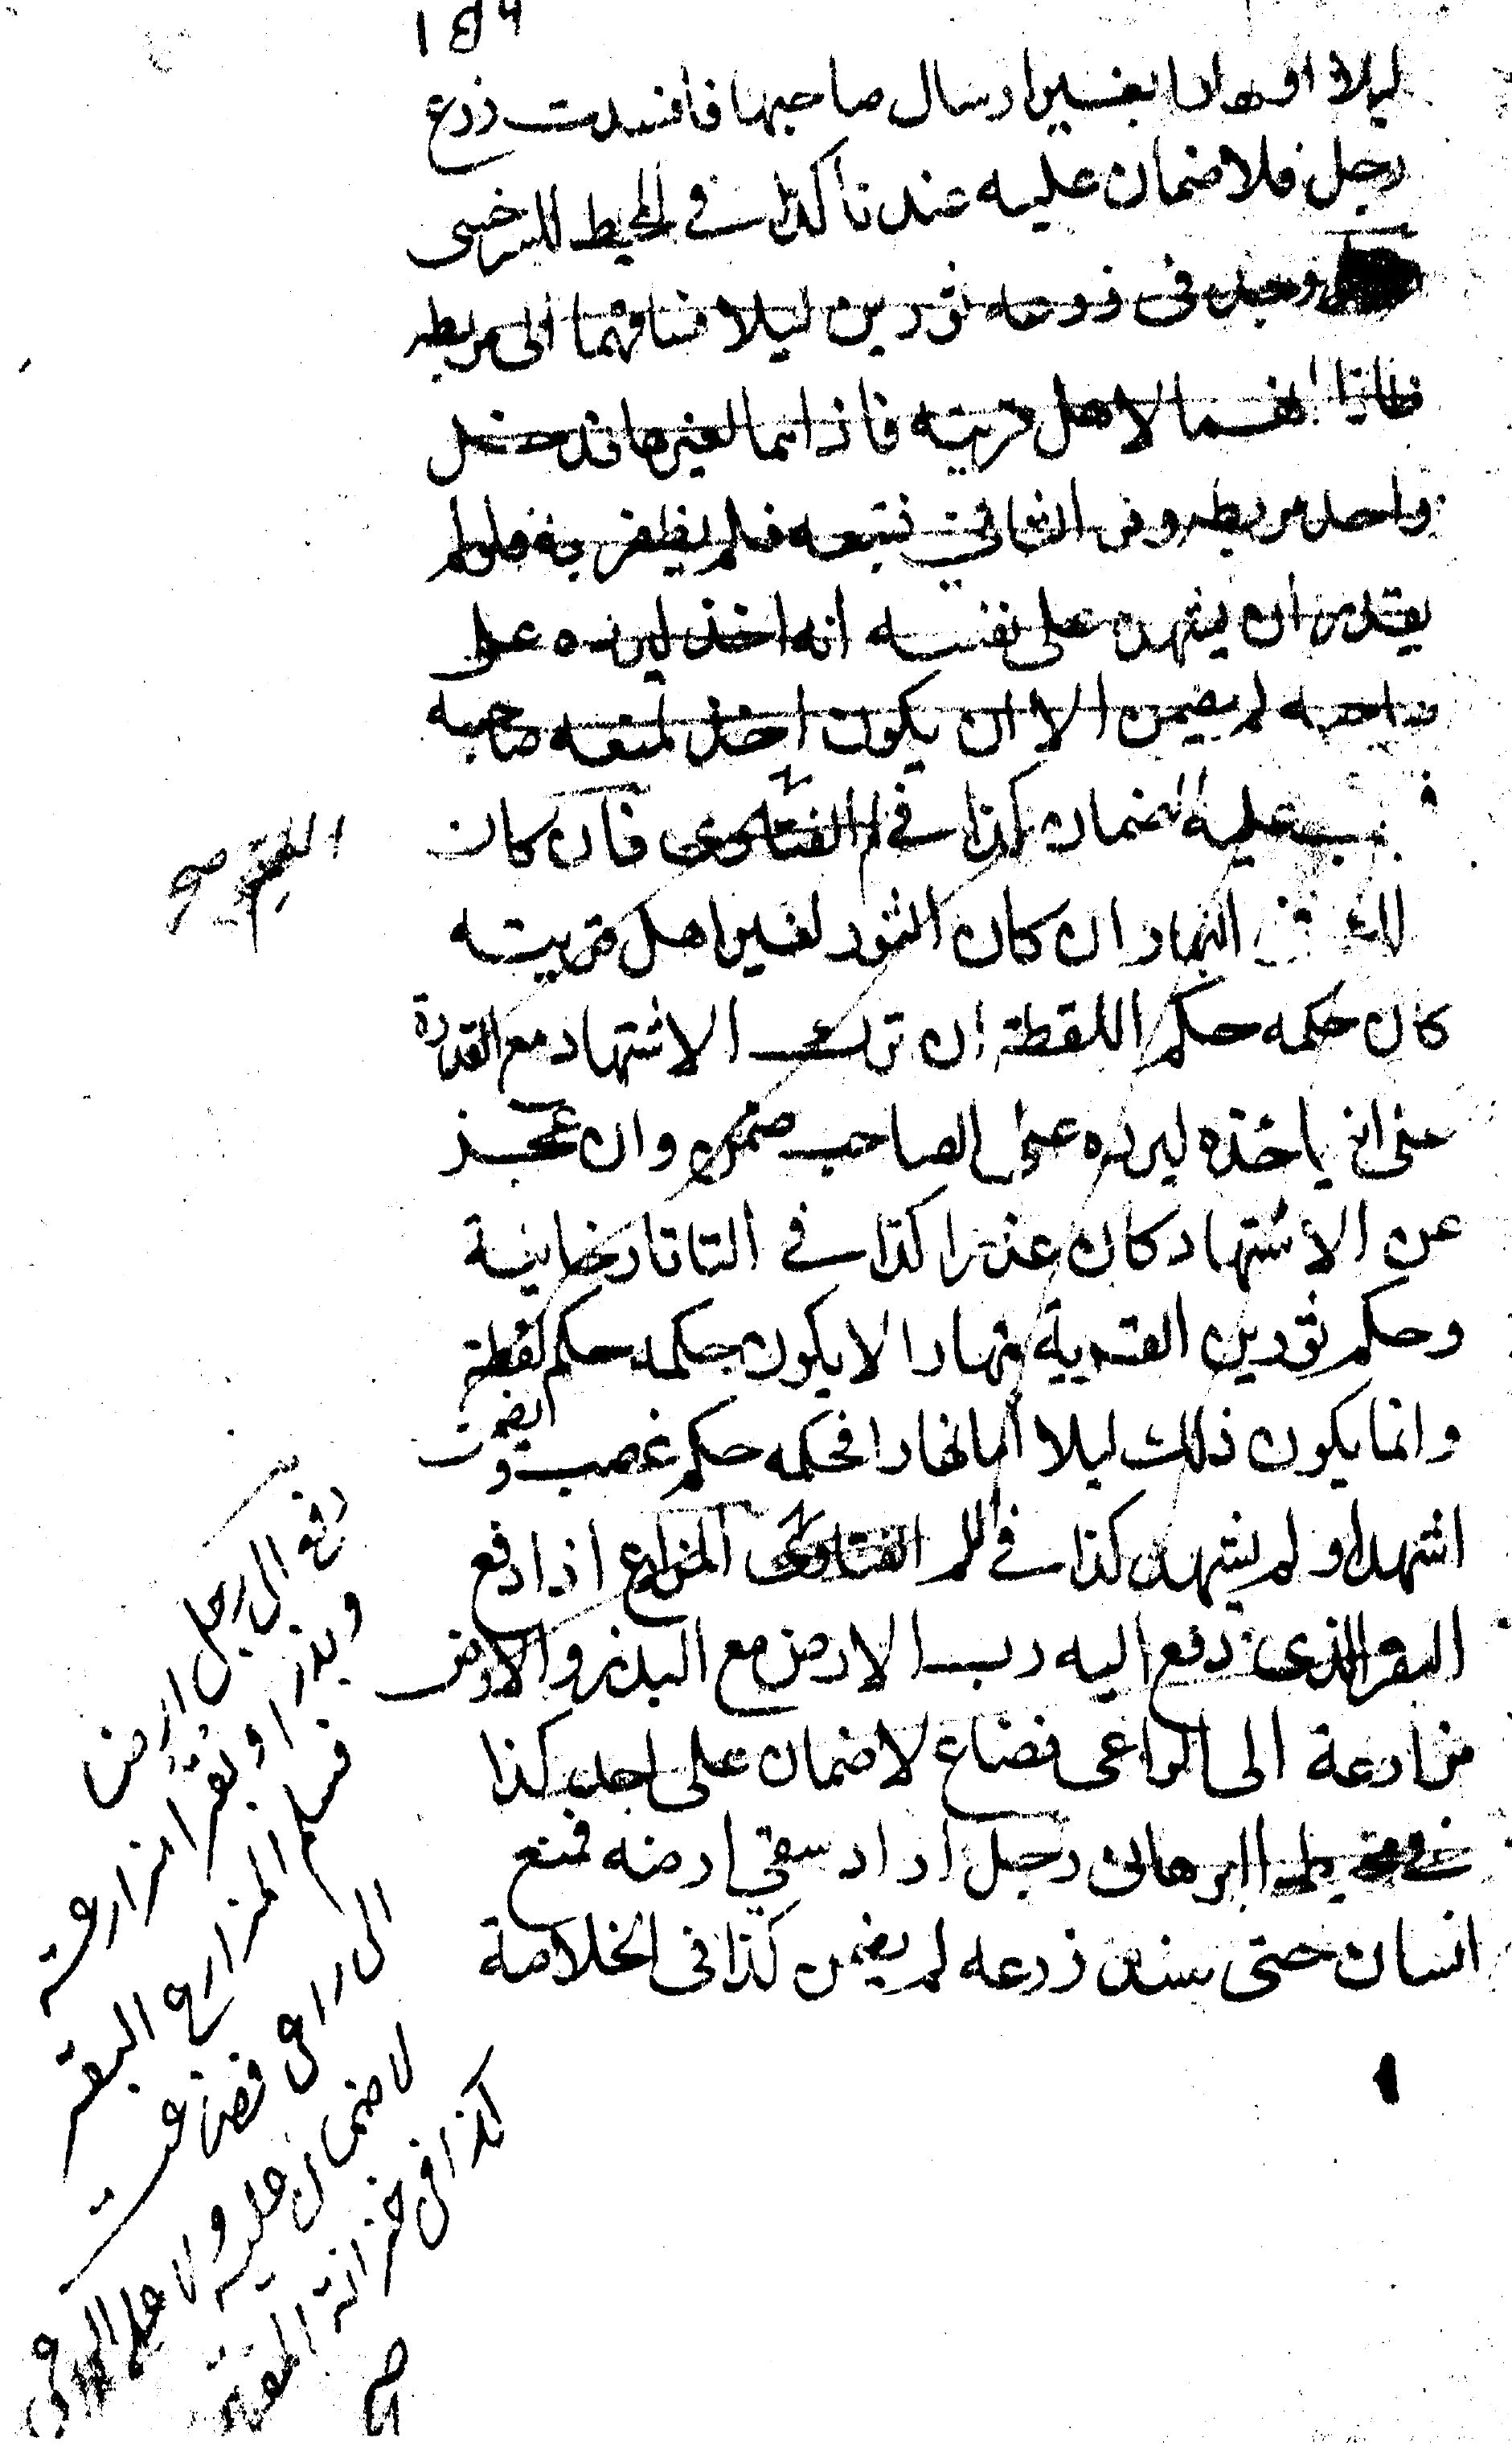 ليلا او نهارا بغير ارسال صاحبها فافسدت زرع
رجل فلا ضمان عليه عندنا كذا في المحيط للسرخسي
وجد في زرعه ثورين ليلا فساقهما الى مربطه
ظانا انهما لاهل قريته فاذا هما لغيرها فدخل
واحد مربطه وفر الثاني فتبعه فلم يظفر به فلو لم
يقدر ان يشهد على نفسه انه اخذ ليرده على
صاحبه لم يضمن الا ان يكون اخذ لمنعه صاحبه
عليه الضمان كذا في الفتاوى فان كان
ذلك في النهار ان كان الثور لغير اهل قريته
كان حكمه حكم اللقطة ان ترك الاشهاد مع القدرة
على انه ياخذه ليرده على الصاحب ضمن وان عجز
عن الاشهاد كان عذرا كذا في التاتارخانية
وحكم ثورين القرية نهارا لا يكون حكمه حكم لقطة
وانما يكون ذلك ليلا اما نهارا فحكمه حكم غصب ويضمن
اشهد او لم يشهد كذا في الفتاوى المزارع اذا دفع
البقر الذي دفع اليه رب الارض مع البذر والارض
مزارعة الى الراعى فضاع لا ضمان على احد كذا
في محيط البرهاني رجل اراد سقي ارضه فمنع
انسان حتى فسد زرعه لم يضمن كذا في الخلاصة
دفع الى رجل ارض
وبذرا وبقرا مزارعة
فسلم المزارع البقر
الى راعي فضاعت
لا ضمان عليه ولا على الراعي
كذا في خزانة المفتين